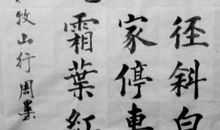 徑斜白
家停車
霜葉紅
牧山行周墨